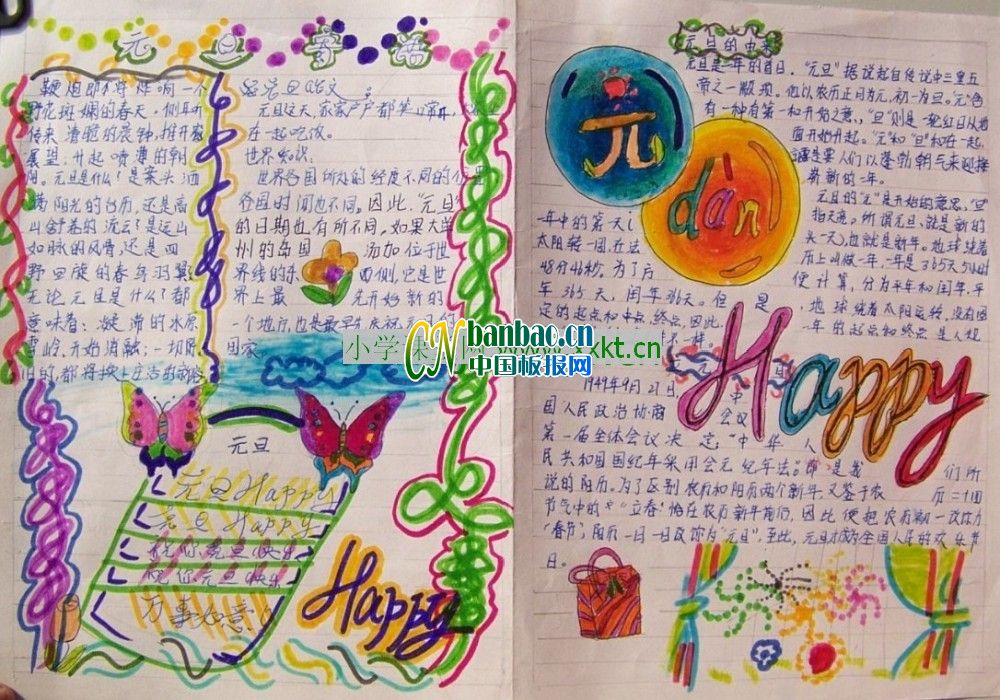 元旦寄语
鞭炮即将炸响一个
野花斑斓的春天。侧耳听
传来清脆的晨钟,推开
展望,升起喷薄的朝
阳。元旦是什么?是案头洒
满阳光的台历,还是高
山舒卷的流云?是远山
如脉的风骨,还是四
野回旋的春鸟羽翼
无论元旦是什么?都
意味着:凝滞的冰原
雪岭,开始消融;一切
旧的,都将换上
元旦这天,家家户户都
在一起吃饭。
世界知识:
世界各国所处的经度不同的
各国的时间也不同。因此,“元旦”
的日期也有所不同。如果大洋
州的岛国 汤加位于世
界线的东 西侧,它是世
界上最 先开始新的
一个地方,也是最早
国家
元旦
元旦Happy
元旦Happy
祝你元旦快乐
祝你元旦快乐
万事如意
Happy
元旦的由来
元旦是一年的首日,“元旦”据说起自传说中三皇五
帝之一颛顼。他以农历正月为元,初一为旦。“元”
有一种有第一和开始之意,“旦”则是一轮红日从地
面开始升起。“元”和“旦”和在一起,
人们以蓬勃朝气来迎接
崭新的一年。
元旦的“元”是开始的意思,“旦”
指天亮。所谓元旦,就是新的
一年中的第一天,也就是新年。地球绕着
太阳转一圈,在 历上叫做一年,一年是365天5小时
48分46秒,为了 便计算,分为平年和闰年,平
年365天,闰年366天。但是,地球绕着太阳运转,没有固
定的起点和 终点,因此,一年的起点和终点是人规
不一样。
元
dàn
Happy
1949年9月27日,中
国人民政治协商 会议
第一届全体会议决定:“中华人
民共和国国纪年采用公元纪年法。即是我们所
说的阳历。为了区别农历和阳历两个新年,又鉴于农历二十四
节气中的“立春”恰在农历新年前后,因此便把农历初一改称为
“春节”,阳历一日一日改称为“元旦”,至此,元旦才成为全国人民的欢乐节
日。
banbao.cn
中国板报网
CN
小学课
xkt.cn